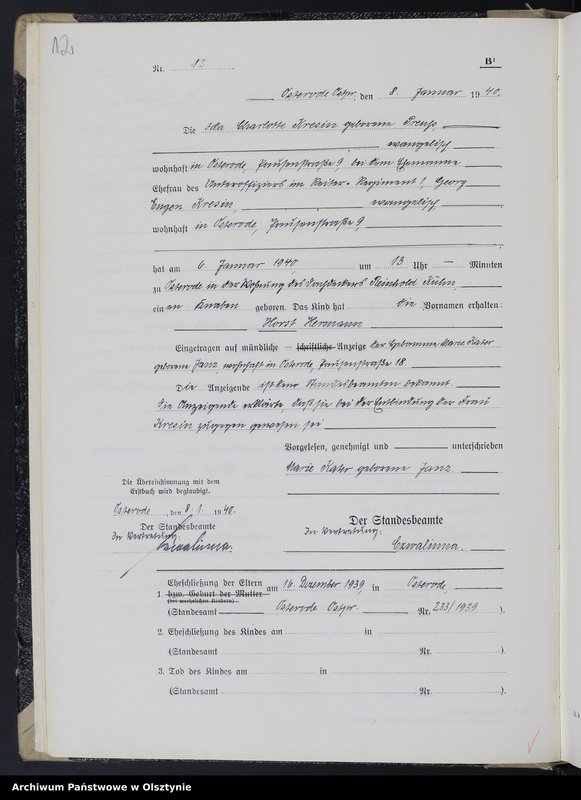 12.
Nr. 12
B¹
Osterode Ostpr., den 8. Januar 1940.
Die Ida Charlotte Kresin geborene Preuß
evangelisch
wohnhaft in Osterode, 9, bei dem Ehemanne
Ehefrau des Unteroffiziers im Reiter-Regiment 1, Georg
Eugen Kresin, evangelisch
wohnhaft in Osterode, 9,
hat am 6. Januar 1940 um 13 Uhr — Minuten
zu Osterode in der Wohnung des Dachdeckers Reinhold Kühn
einen Knaben geboren. Das Kind hat die Vornamen erhalten:
Horst Hermann
Eingetragen auf mündliche – schriftliche – Anzeige der Hebamme Marie Kater
geborene Janz wohnhaft in Osterode, 18.
Die Anzeigende ist dem Standesbeamten bekannt.
Die Anzeigende erklärte, daß sie bei der Entbindung der Frau
Kresin zugegen gewesen sei
Vorgelesen, genehmigt und unterschrieben
Marie Kater geborene Janz.
Die Übereinstimmung mit dem
Erstbuch wird beglaubigt.
Osterode, den 8. 1. 1940.
Der Standesbeamte
In Vertretung:
Czwalinna.
Der Standesbeamte
In Vertretung:
Czwalinna.
Eheschließung der Eltern am 16. Dezember 1939, in Osterode,
1. bzw. Geburt der Mutter
(bei unehelichen Kindern)
(Standesamt Osterode Ostpr. Nr. 233/1939 ).
2. Eheschließung des Kindes am in
(Standesamt Nr. ).
3. Tod des Kindes am in
(Standesamt Nr. ).
Archiwum Państwowe w Olsztynie